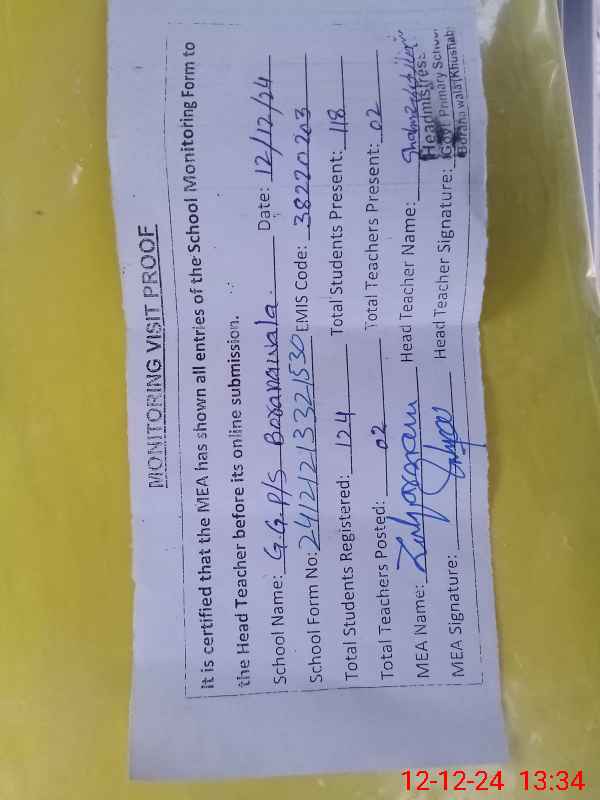 MONITORING VISIT PROOF
It is certified that the MEA has shown all entries of the School Monitoring Form to
the Head Teacher before its online submission.
School Name: G.G.P/S Boranawala Date: 12/12/24
School Form No: 24121213321530 EMIS Code: 38220203
Total Students Registered: 124 Total Students Present: 118
Total Teachers Posted: 02 Total Teachers Present: 02
MEA Name: Head Teacher Name:
MEA Signature: Head Teacher Signature:
Headmistress
Govt Primary School
12-12-24 13:34